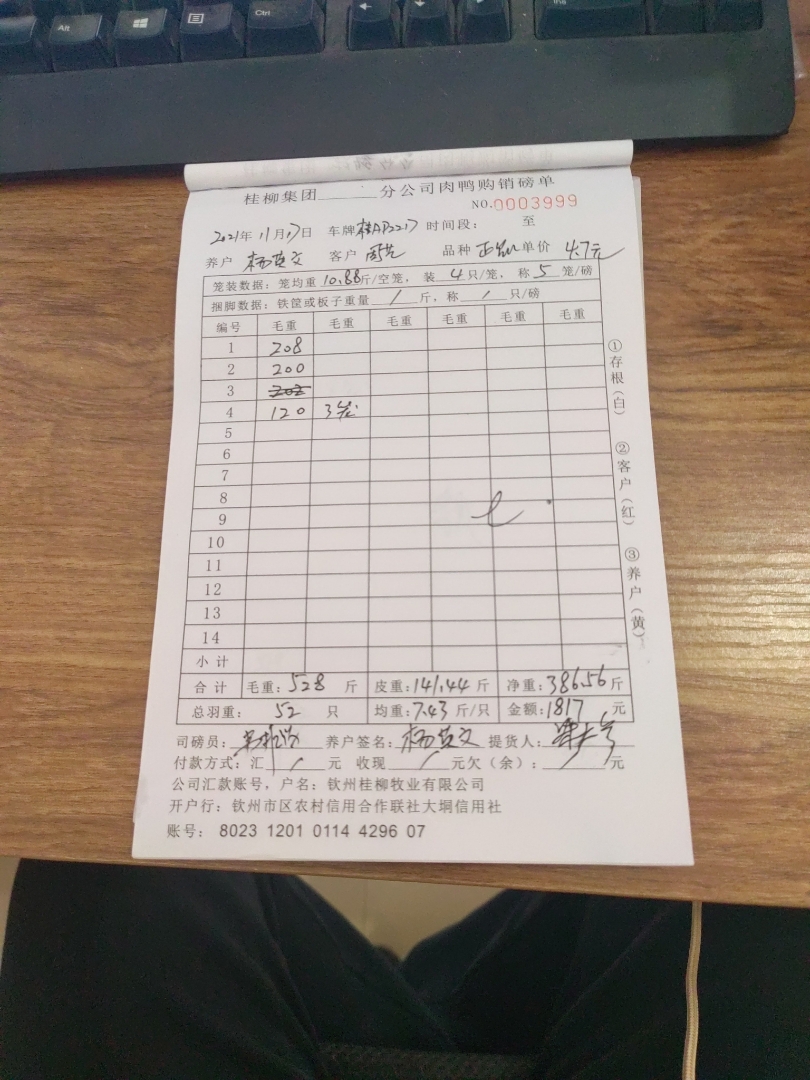 Alt
Ctrl
Ins
桂柳集团______分公司肉鸭购销磅单
NO.0003999
2021年11月17日 车牌 时间段: 至
养户 杨英文 客户 品种 单价 4.7元
笼装数据: 笼均重 10.88 斤/空笼, 装 4 只/笼, 称 5 笼/磅
捆脚数据: 铁筐或板子重量 / 斤, 称 / 只/磅
编号 毛重 毛重 毛重 毛重 毛重 毛重
1 208
2 200
3 202
4 120 3笼
5
6
7
8
9
10
11
12
13
14
小计
合计 毛重: 528 斤 皮重: 141.44 斤 净重: 386.56 斤
总羽重: 52 只 均重: 7.43 斤/只 金额: 1817 元
司磅员: 养户签名: 杨英文 提货人:
付款方式: 汇 / 元 收现 / 元 欠(余): / 元
公司汇款账号, 户名: 钦州桂柳牧业有限公司
开户行: 钦州市区农村信用合作联社大垌信用社
账号: 8023 1201 0114 4296 07
①存根(白)
②客户(红)
③养户(黄)